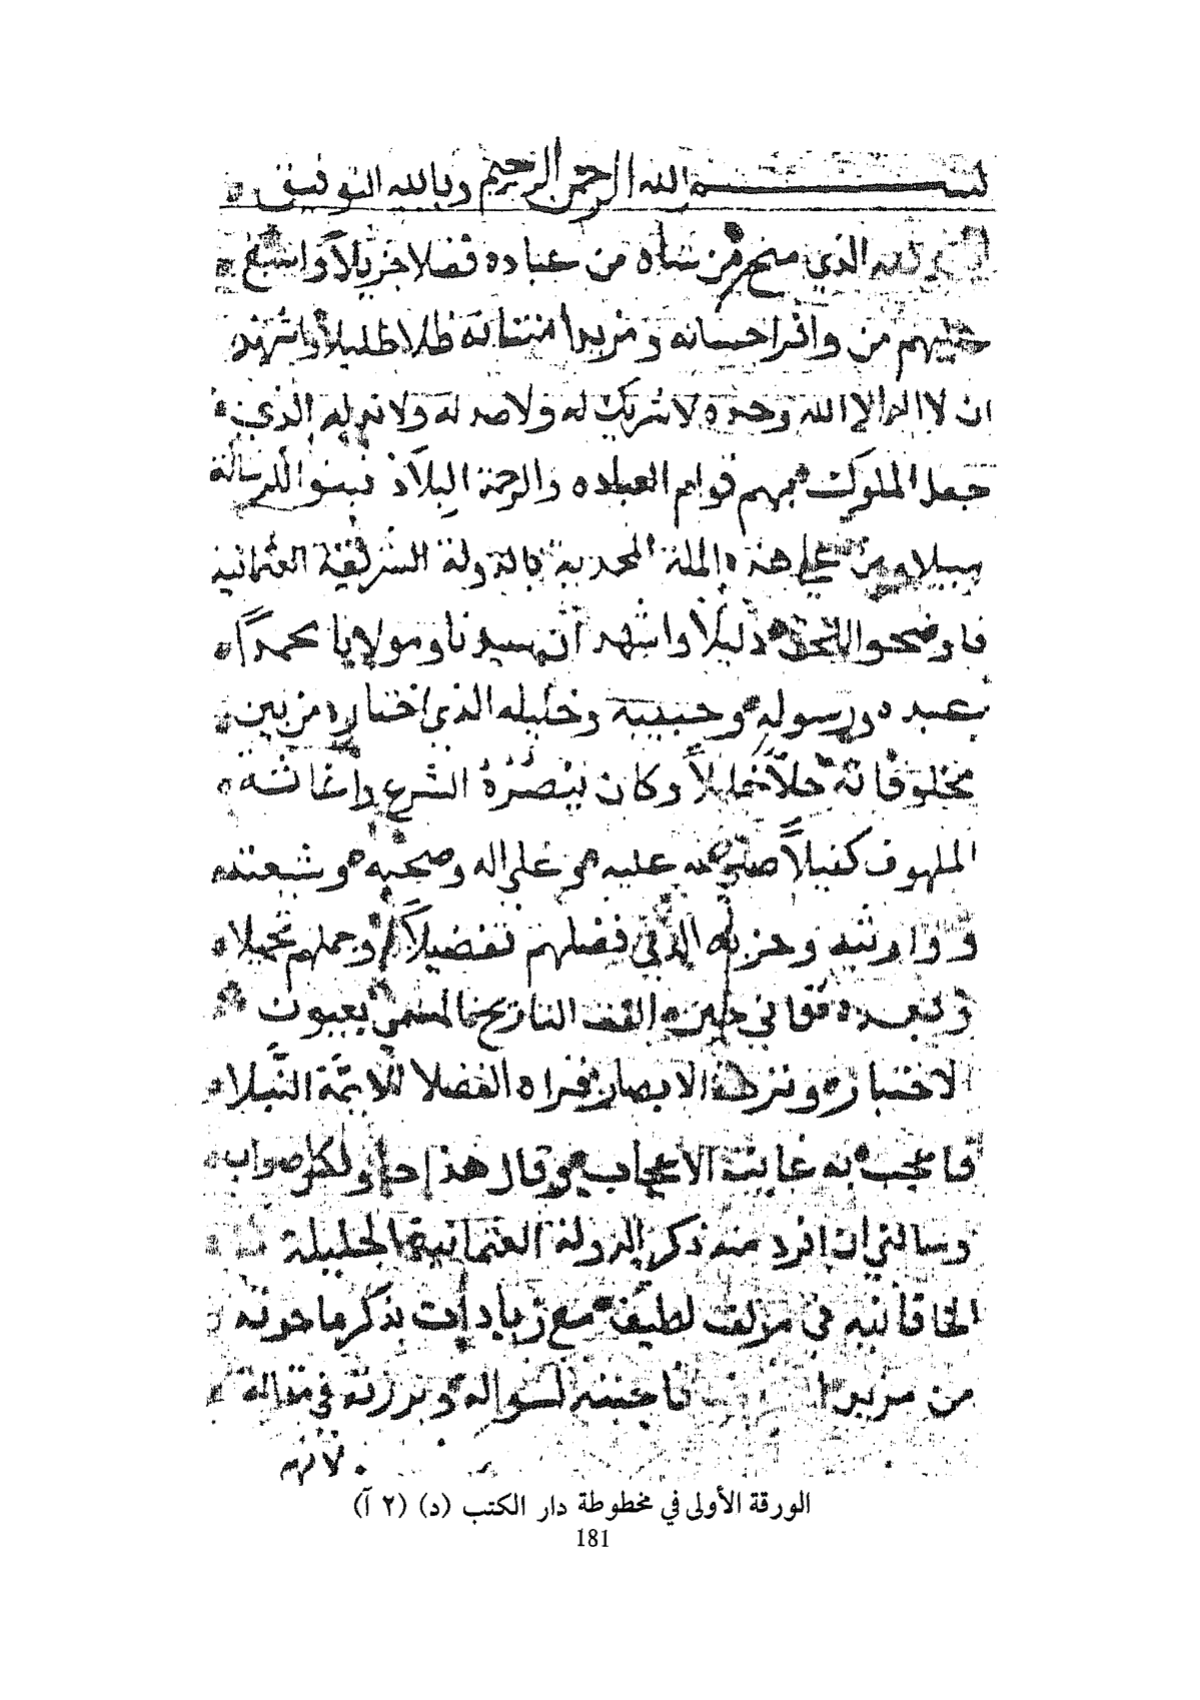 بسم الله الرحمن الرحيم وبالله التوفيق
الحمد لله الذي منح من شاء من عباده فضلا جزيلاً واسبغ
عليهم من وافر احسانه ومزيد امتنانه ظلا ظليلاً واشهد
ان لا اله الا الله وحده لا شريك له ولا ضد له ولا ند له الذي
جعل الملوك بهم قوام العباده والرحمة البلاد
سبيلا ومن على هذه الملة المحمدية بالدولة الشريفة العثمانية
فاوضحوا للحق دليلاً واشهد ان سيدنا ومولانا محمداً
عبده ورسوله وحبيبه وخليله الذي اختاره من بين
مخلوقاته خلاً خليلاً وكان بنصرة الشرع واغاثته
الملهوف كفيلاً صلى الله عليه وعلى اله وصحبه وشيعته
ووارثيه وحزبه الذي فضلهم تفضيلاً وجملهم تجميلا
وبعده فقاني حين الفت التاريخ المسمى بعيون
الاخبار ونزهة الابصار فراه الفضلا الايمة النبلا
فاعجب به غايت الاعجاب وقال هذا ولكل صواب
وسالني ان افرد منه ذكر الدولة العثمانية الجليلة
الخاقانيه في مولف لطيف مع زيادات بذكر ما حوته
من مزيد فاجبته لسواله وبرزته في مقالة
لانهم
الورقة الأولى في مخطوطة دار الكتب (د) (٢ آ)
181